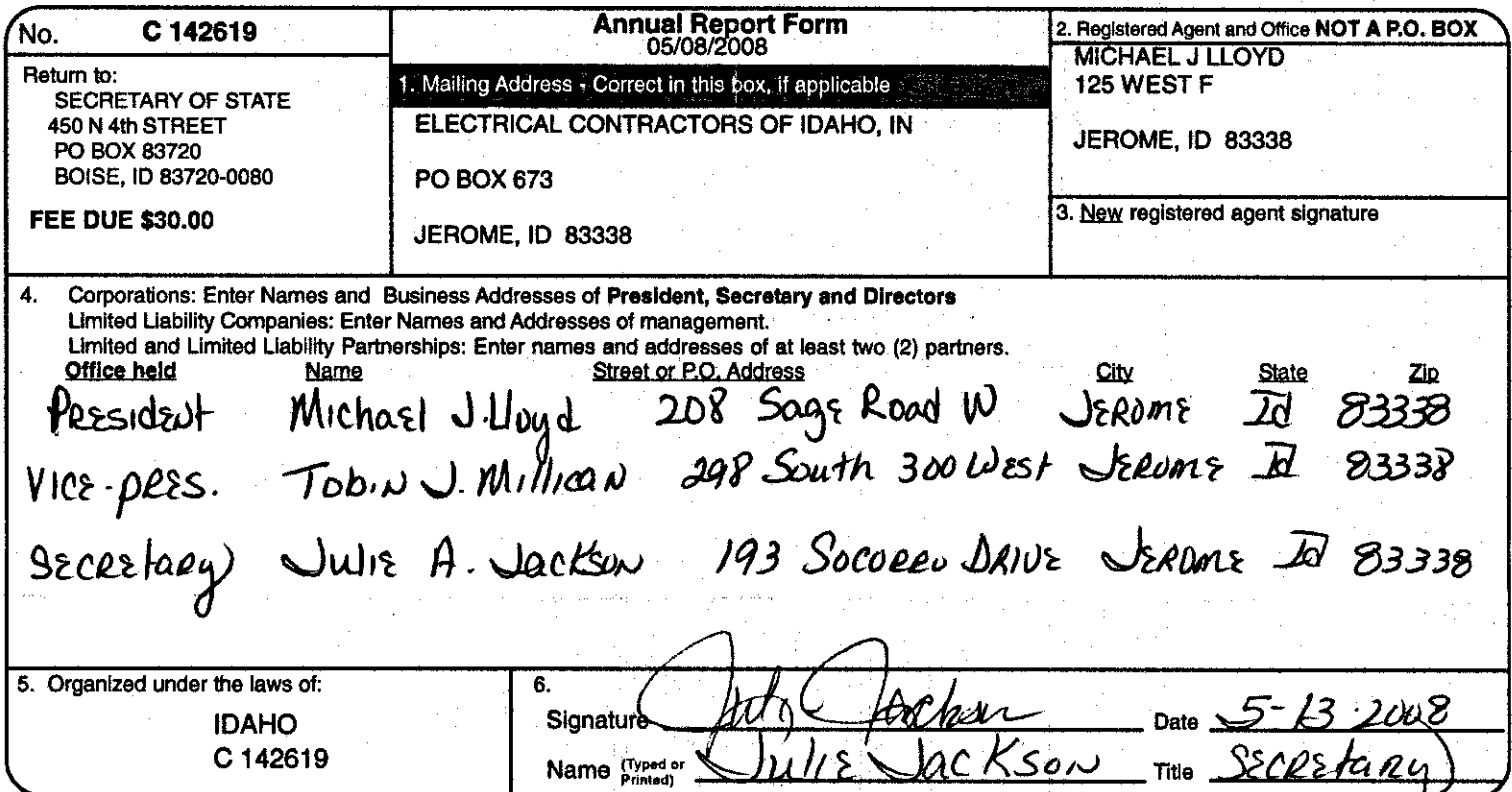 No. C 142619
Return to:
SECRETARY OF STATE
450 N 4th STREET
PO BOX 83720
BOISE, ID 83720-0080
FEE DUE $30.00
Annual Report Form
05/08/2008
1. Mailing Address - Correct in this box, if applicable
ELECTRICAL CONTRACTORS OF IDAHO, IN
PO BOX 673
JEROME, ID 83338
2. Registered Agent and Office NOT A P.O. BOX
MICHAEL J LLOYD
125 WEST F
JEROME, ID 83338
3. New registered agent signature
4. Corporations: Enter Names and Business Addresses of President, Secretary and Directors
Limited Liability Companies: Enter Names and Addresses of management.
Limited and Limited Liability Partnerships: Enter names and addresses of at least two (2) partners.
Office held Name Street or P.O. Address City State Zip
President Michael J. Lloyd 208 Sage Road W Jerome Id 83338
Vice-pres. Tobin J. Millican 298 South 300 West Jerome Id 83338
Secretary Julie A. Jackson 193 Socorro Drive Jerome Id 83338
5. Organized under the laws of:
IDAHO
C 142619
6.
Signature Julie Jackson Date 5-13-2008
Name (Typed or Printed) Julie Jackson Title Secretary